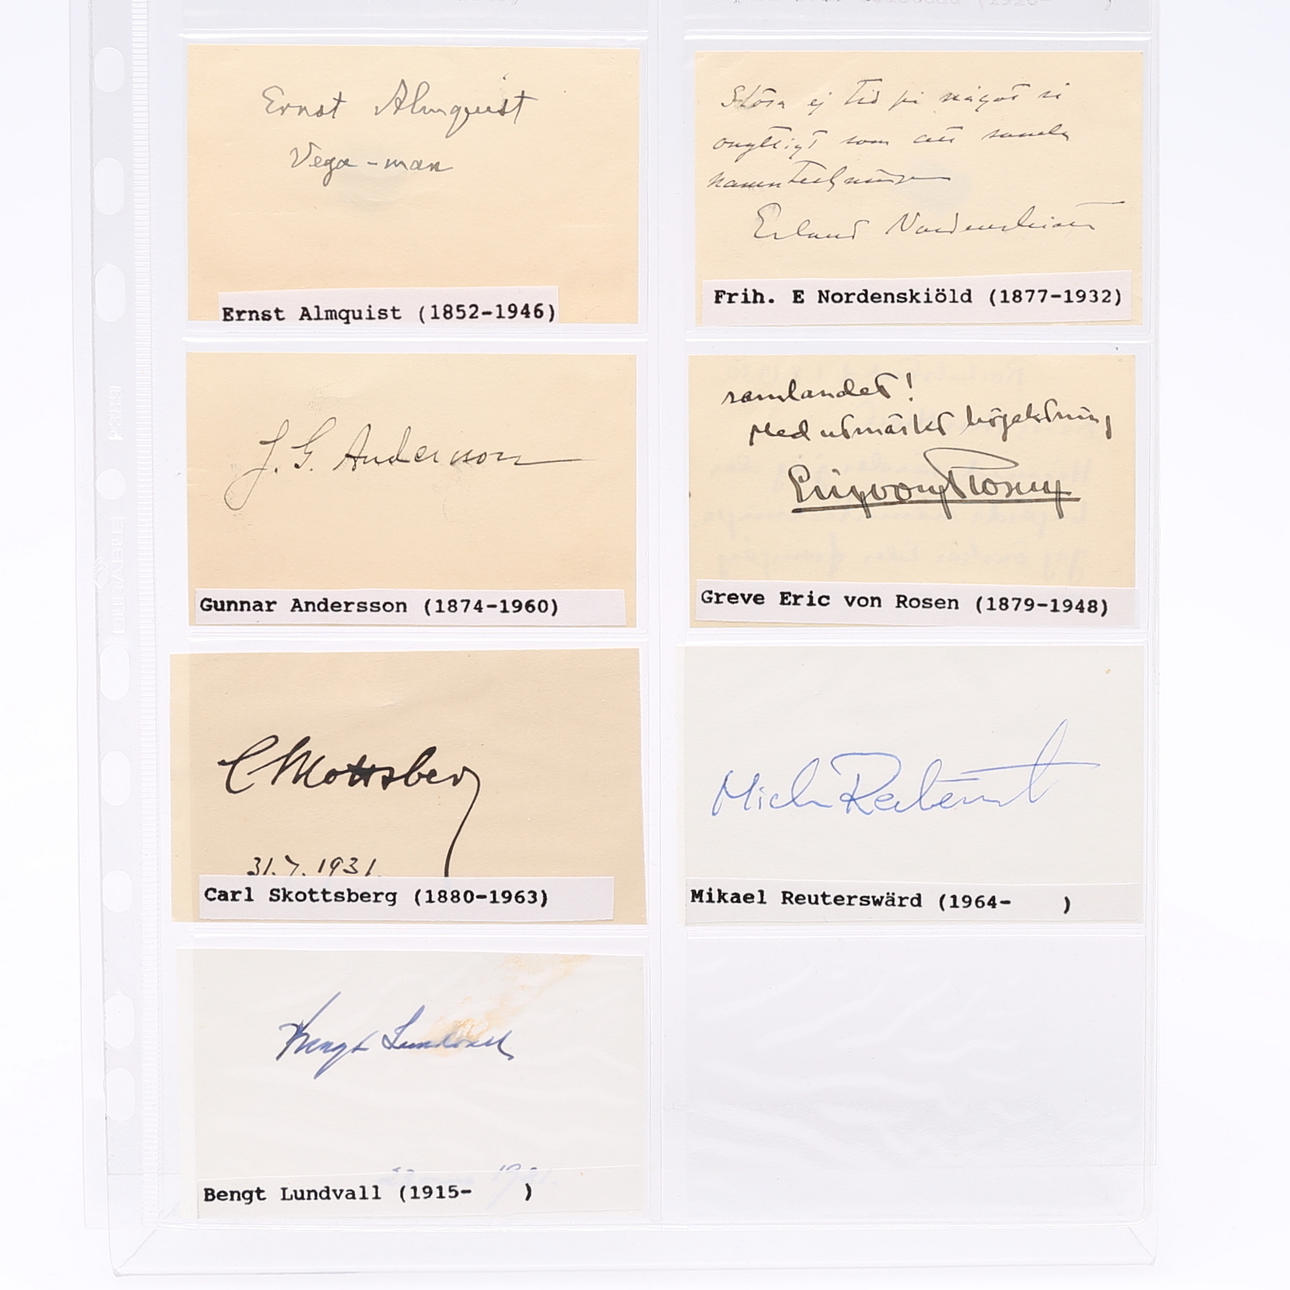 Ernst Almquist
Vega-man
Ernst Almquist (1852-1946)
Slösa ej tid på något så
onyttigt som att samla
namnteckningar
Erland Nordenskiöld
Frih. E Nordenskiöld (1877-1932)
J. G. Andersson
Gunnar Andersson (1874-1960)
samlandet!
Med utmärkt högaktning
Eric von Rosen
Greve Eric von Rosen (1879-1948)
C Skottsberg
31.7.1931.
Carl Skottsberg (1880-1963)
Mikael Reuterswärd (1964- )
Bengt Lundvall
Bengt Lundvall (1915- )